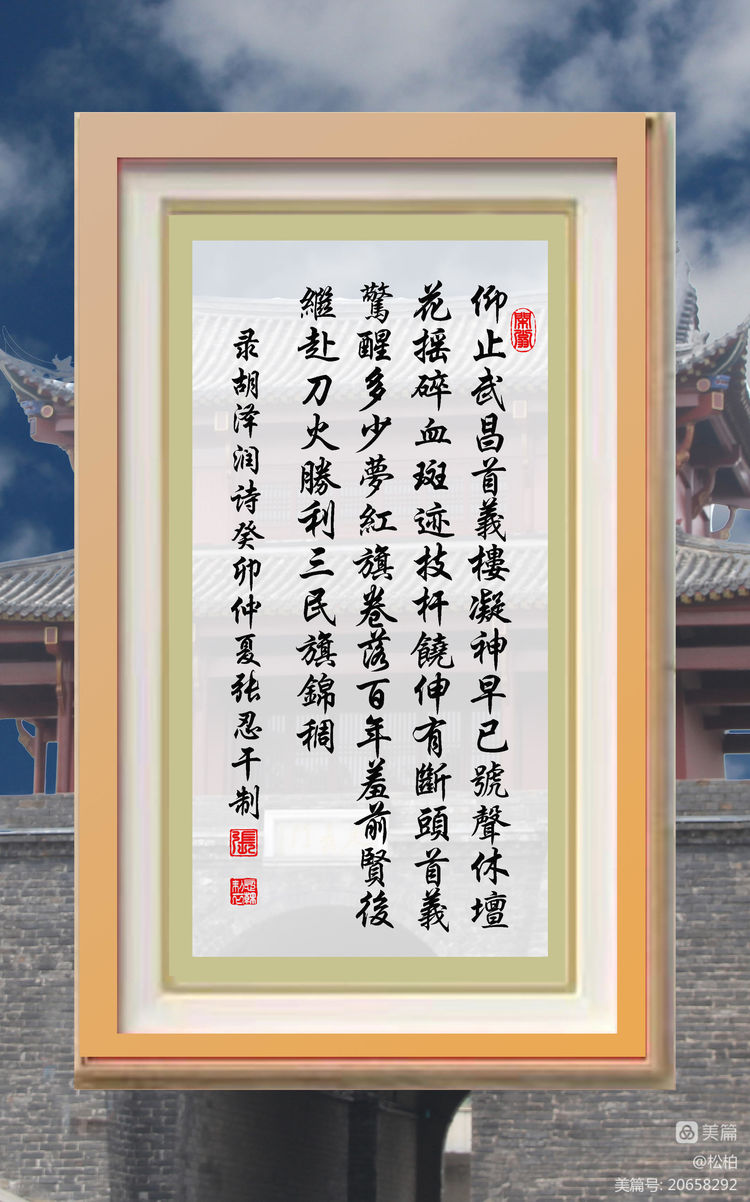 仰止武昌首義樓凝神早已號聲休壇
花摇碎血斑迹技杆饒伸有斷頭首義
驚醒多少夢紅旗卷落百年羞前賢後
繼赴刀火勝利三民旗錦稠
录胡泽润诗癸卯仲夏张忍干制
張
美篇
@松柏
美篇号: 20658292